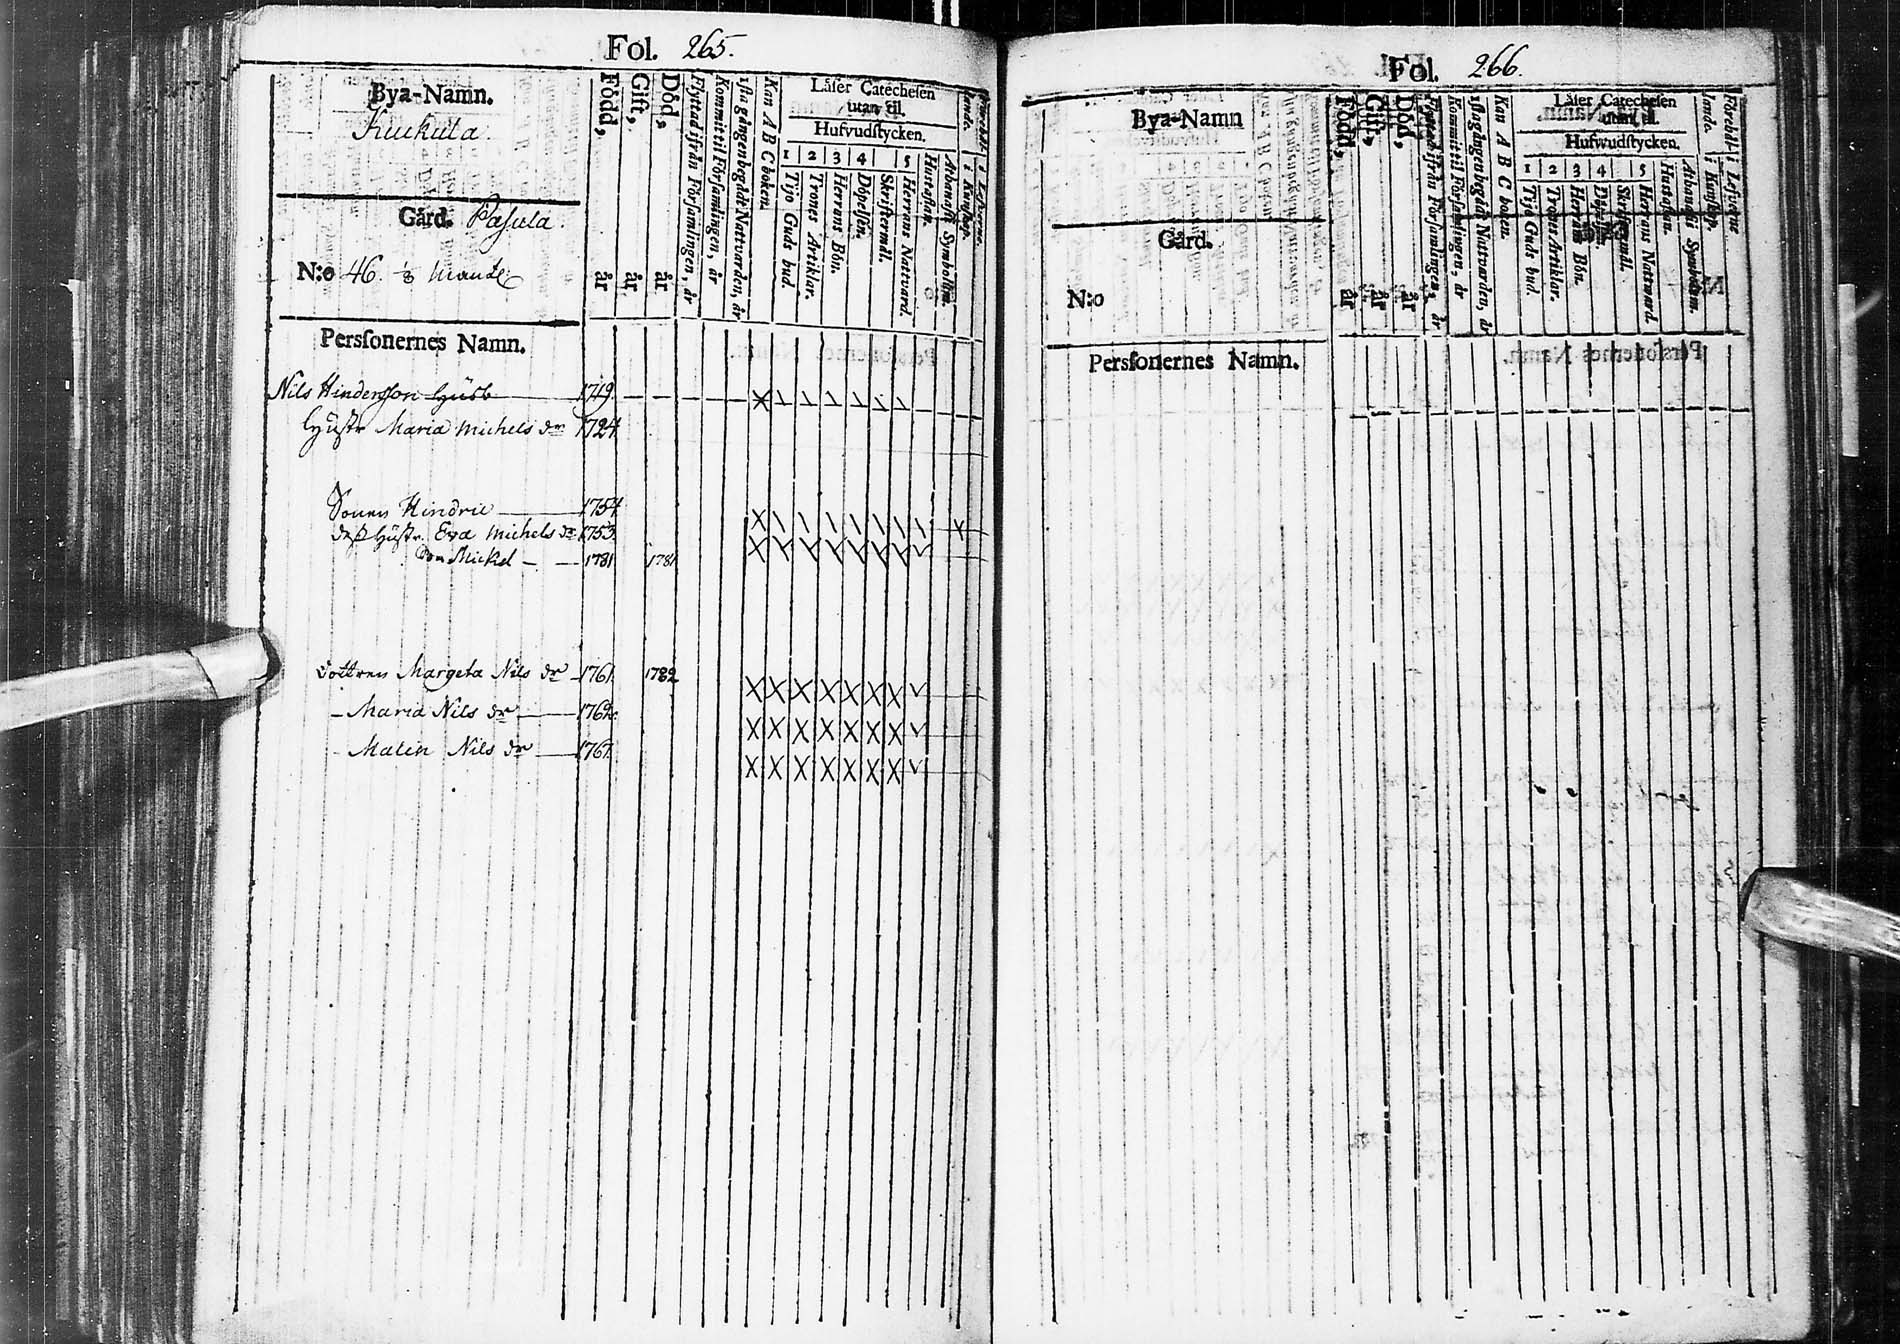 Fol. 265.
Bya-Namn.
Kuukula
Gård. Pasula.
N:o 46. 1/3 Mantl:
Född, år
Gift, år
Död, år
Flyttad ifrån Församlingen, år
Kommit til Församlingen, år
1sta gången begådt Nattvarden, år
Kan A B C boken.
Läser Catechesen
utan til.
Hufvudstycken.
1 2 3 4 5
Tijo Guds bud.
Trones Artiklar.
Herrans Bön.
Döpelsen.
Skriftermål.
Herrans Nattvard.
Hustaflan.
Athanasii Symbolum.
Personernes Namn.
Nils Hindersson Husb 1719.
Hustr Maria Michels dr 1724.
Sonen Hindric 1754
dess Hustr. Eva Michels dr 1753.
Son Mickel 1781 1781
dottren Margeta Nils dr 1761. 1782
Maria Nils dr 1764.
Malin Nils dr 1767.
Fol. 266.
Bya-Namn
Gård.
N:o
Född, år
Gift, år
Död, år
Flyttad ifrån Församlingen, år
Kommit til Församlingen, år
1sta gången begådt Nattvarden, år
Kan A B C boken.
Läser Catechesen
utan til.
Hufwudstycken.
1 2 3 4 5
Tijo Guds bud.
Trones Artiklar.
Herrans Bön.
Döpelsen.
Skriftermål.
Herrans Nattward.
Hustaflan.
Athanasii Symbolum.
Personernes Namn.